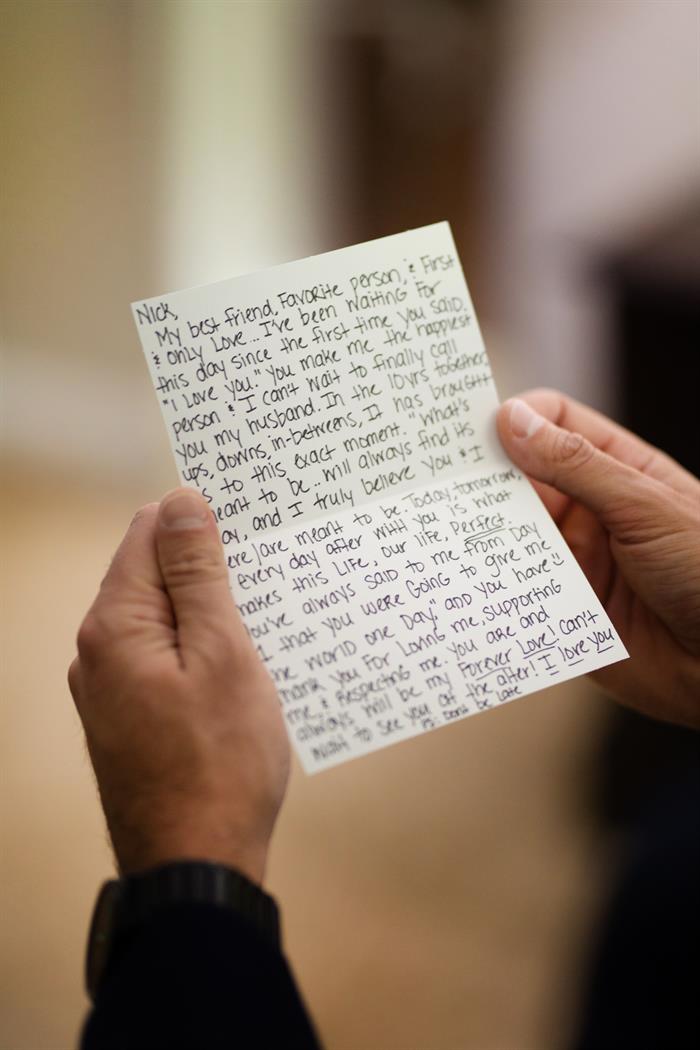 Nick,
My best friend, Favorite person, & First
& only Love... I've been waiting For
this day since the first time you said
"I love you." You make me the happiest
person & I can't wait to finally call
you my husband. In the 10yrs together,
ups, downs, in-betweens, It has brought
s to this exact moment. "What's
meant to be... will always find its
ay, and I truly believe you & I
ere/are meant to be. Today, tomorrow,
every day after with you is what
makes this Life, our life, Perfect.
You've always said to me from Day
1 that you were Going to give me
he world one Day," and you have :)
hank you For Loving me, supporting
me, & Respecting me. you are and
always will be my Forever Love! can't
Wait to see you at the alter! I love you
PS: Dont be late